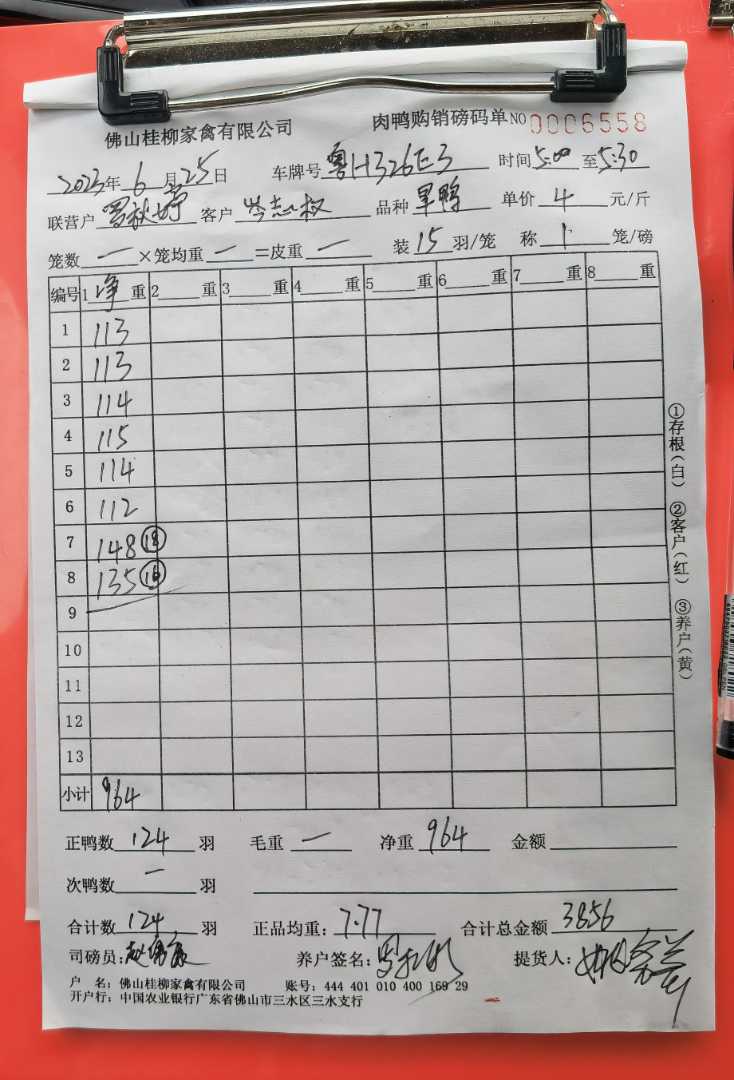 佛山桂柳家禽有限公司 肉鸭购销磅码单NO 0006558
2023年6月25日 车牌号 粤H326E3 时间5:00至5:30
联营户 客户 岑志权 品种 旱鸭 单价 4 元/斤
笼数 一 ×笼均重 一 =皮重 一 装 15 羽/笼 称 1 笼/磅
编号 1 净 重 2 重 3 重 4 重 5 重 6 重 7 重 8 重
1 113
2 113
3 114
4 115
5 114
6 112
7 148 ⑱
8 135 ⑯
9
10
11
12
13
小计 964
正鸭数 124 羽 毛重 一 净重 964 金额
次鸭数 一 羽
合计数 124 羽 正品均重:7.77 合计总金额 3856
司磅员: 养户签名: 提货人:
户 名: 佛山桂柳家禽有限公司 账号: 444 401 010 400 169 29
开户行: 中国农业银行广东省佛山市三水区三水支行
①存根(白) ②客户(红) ③养户(黄)